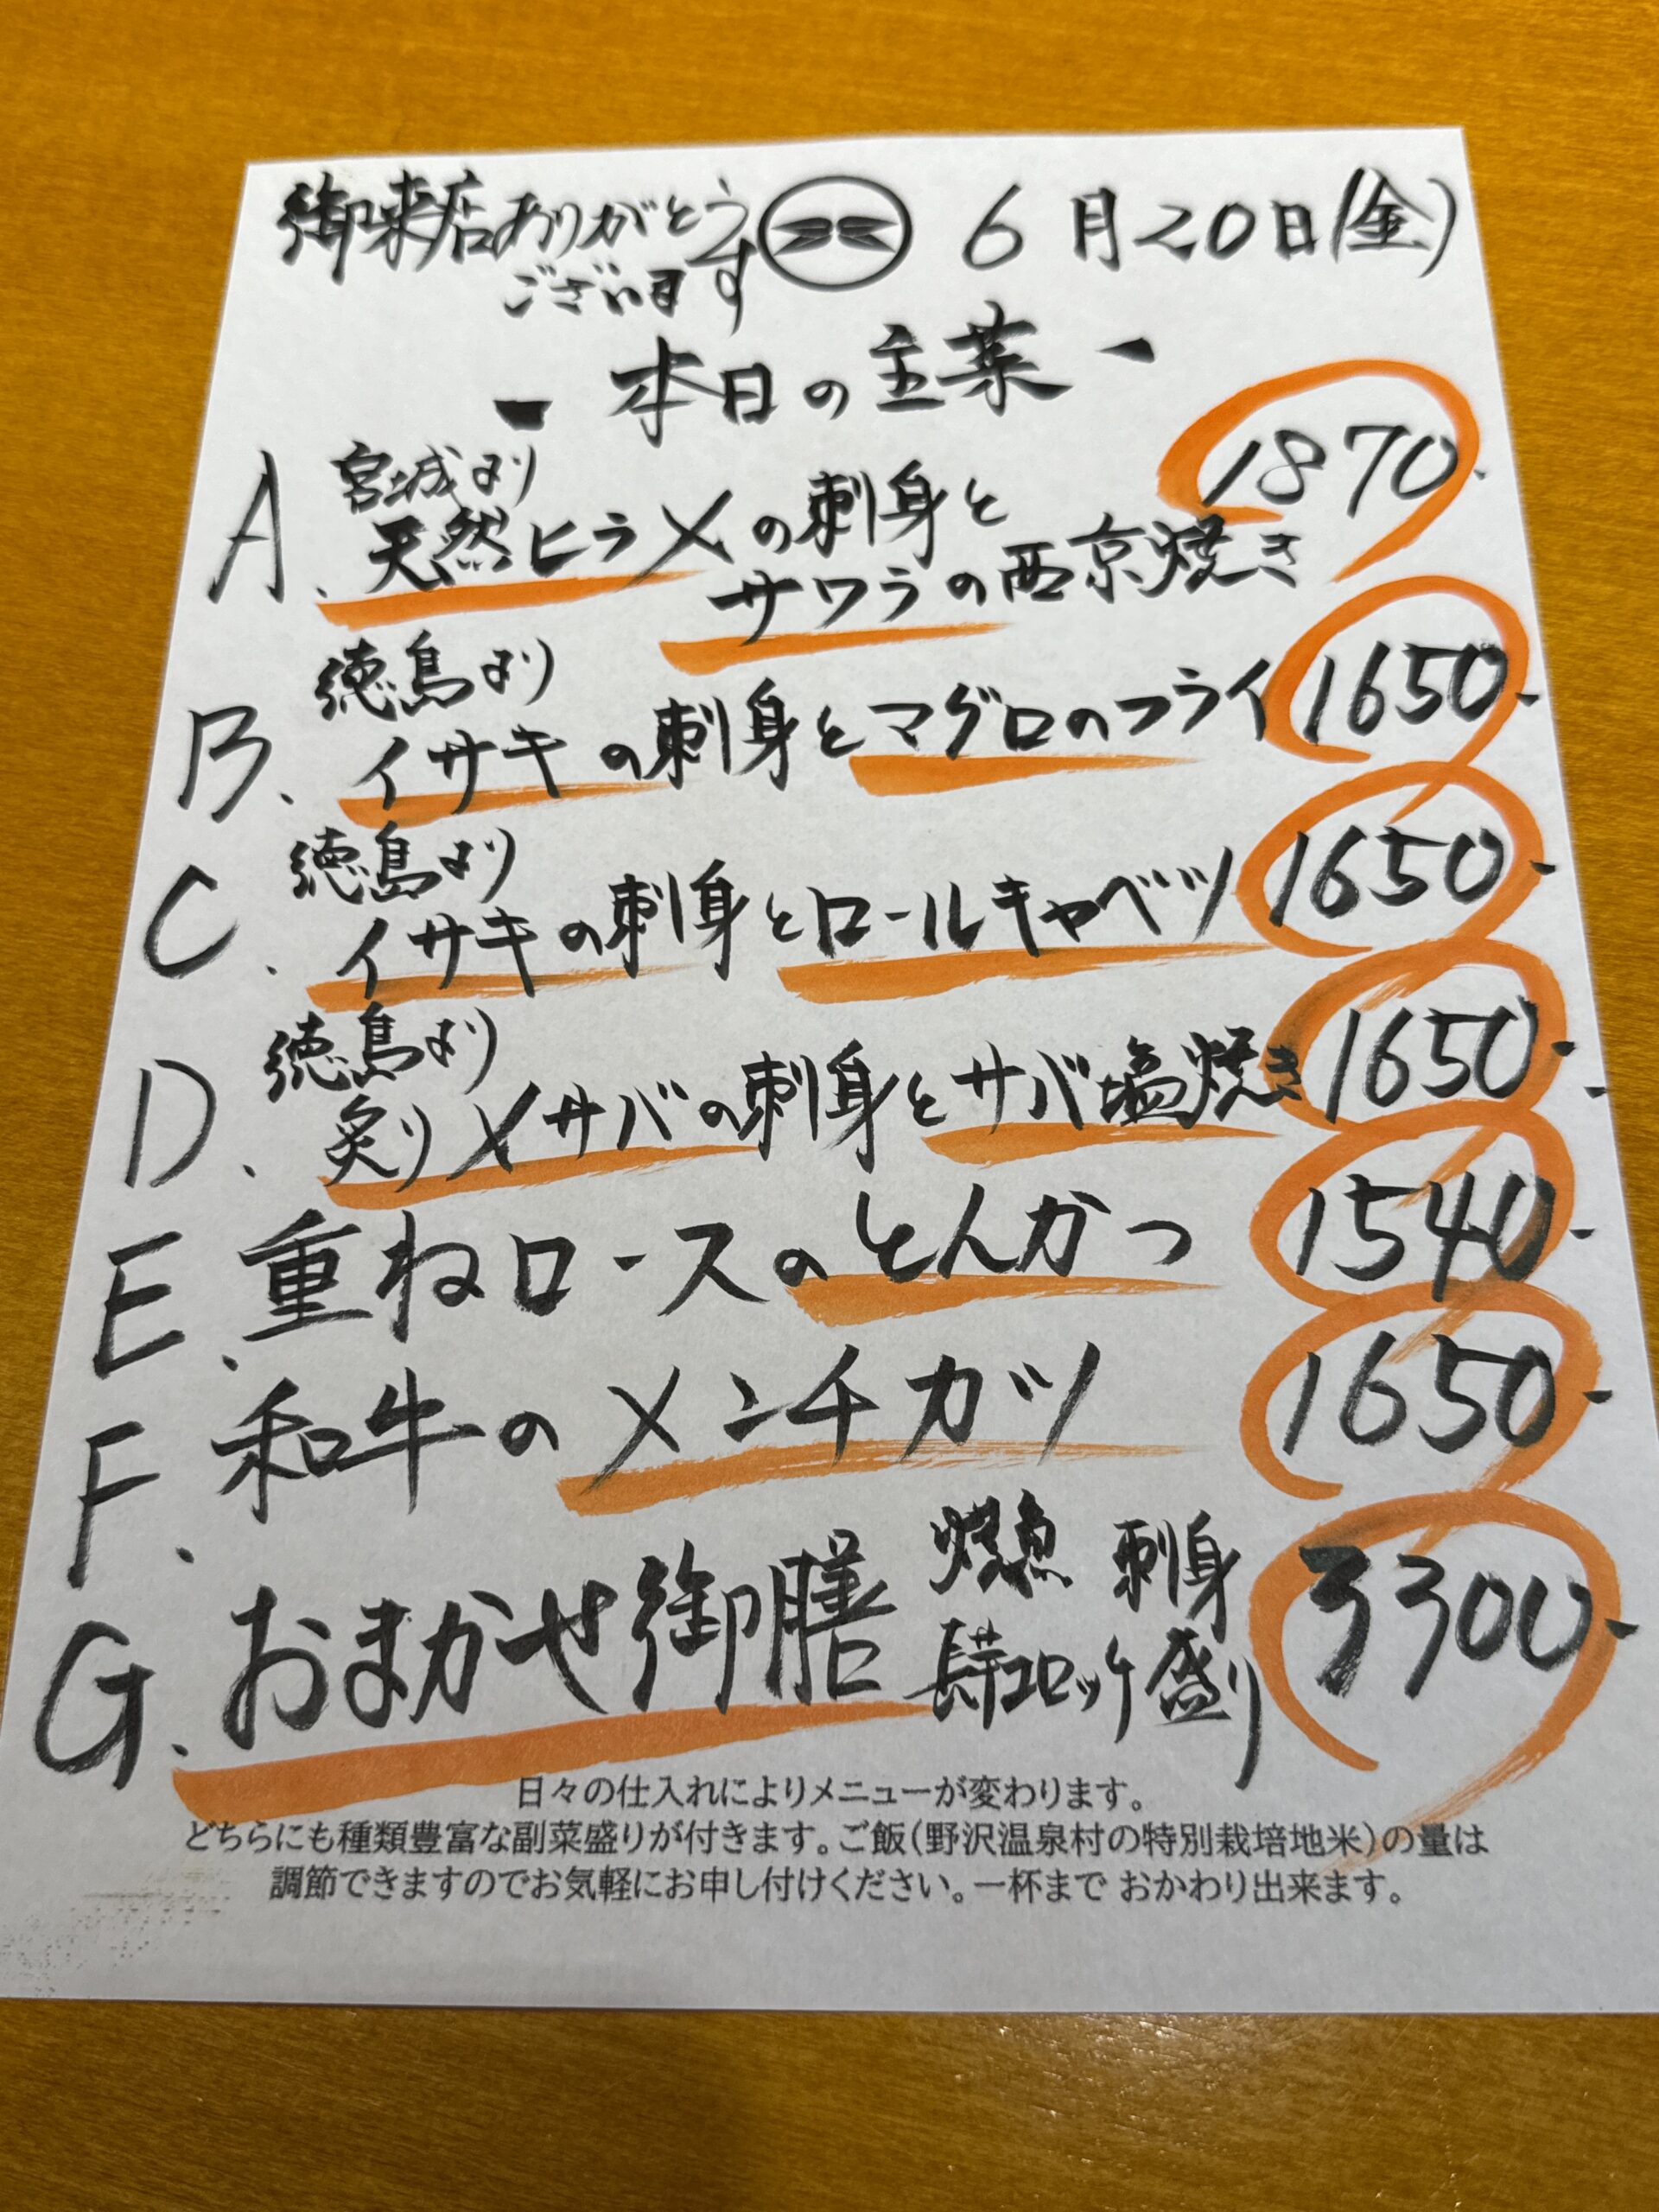 御来店ありがとう
ございます
6月20日(金)
- 本日の主菜 -
A. 宮城より
天然ヒラメの刺身と
サワラの西京焼き
1870-
B. 徳島より
イサキの刺身とマグロのフライ 1650-
C. 徳島より
イサキの刺身とロールキャベツ 1650-
D. 徳島より
炙り〆サバの刺身とサバ塩焼き 1650-
E. 重ねロースのとんかつ 1540-
F. 和牛のメンチカツ 1650-
G. おまかせ御膳 3300-
焼魚 刺身
長芋コロッケ盛り
日々の仕入れによりメニューが変わります。
どちらにも種類豊富な副菜盛りが付きます。ご飯(野沢温泉村の特別栽培地米)の量は
調節できますのでお気軽にお申し付けください。一杯まで おかわり出来ます。